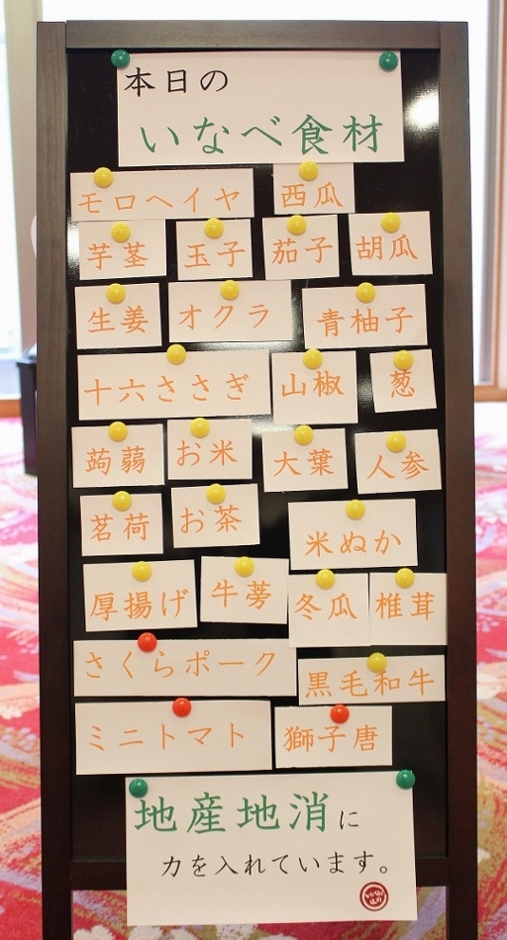 本日の
いなべ食材
モロヘイヤ 西瓜
芋茎 玉子 茄子 胡瓜
生姜 オクラ 青柚子
十六ささぎ 山椒 葱
蒟蒻 お米 大葉 人参
茗荷 お茶 米ぬか
厚揚げ 牛蒡 冬瓜 椎茸
さくらポーク 黒毛和牛
ミニトマト 獅子唐
地産地消に
力を入れています。